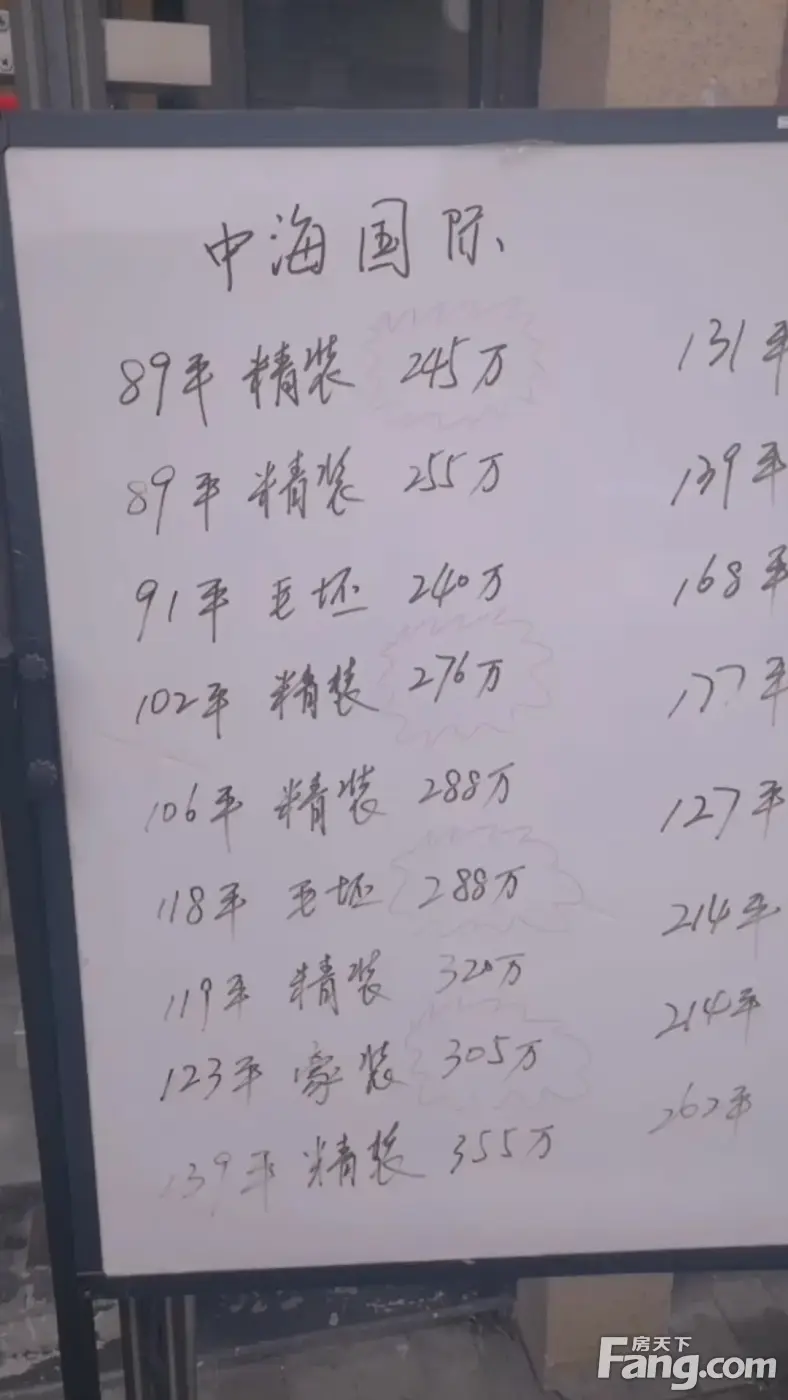 中海国际
89平 精装 245万
89平 精装 255万
91平 毛坯 240万
102平 精装 276万
106平 精装 288万
118平 毛坯 288万
119平 精装 320万
123平 豪装 305万
139平 精装 355万
131平
139平
168平
177平
127平
214平
214平
262平
房天下
Fang.com